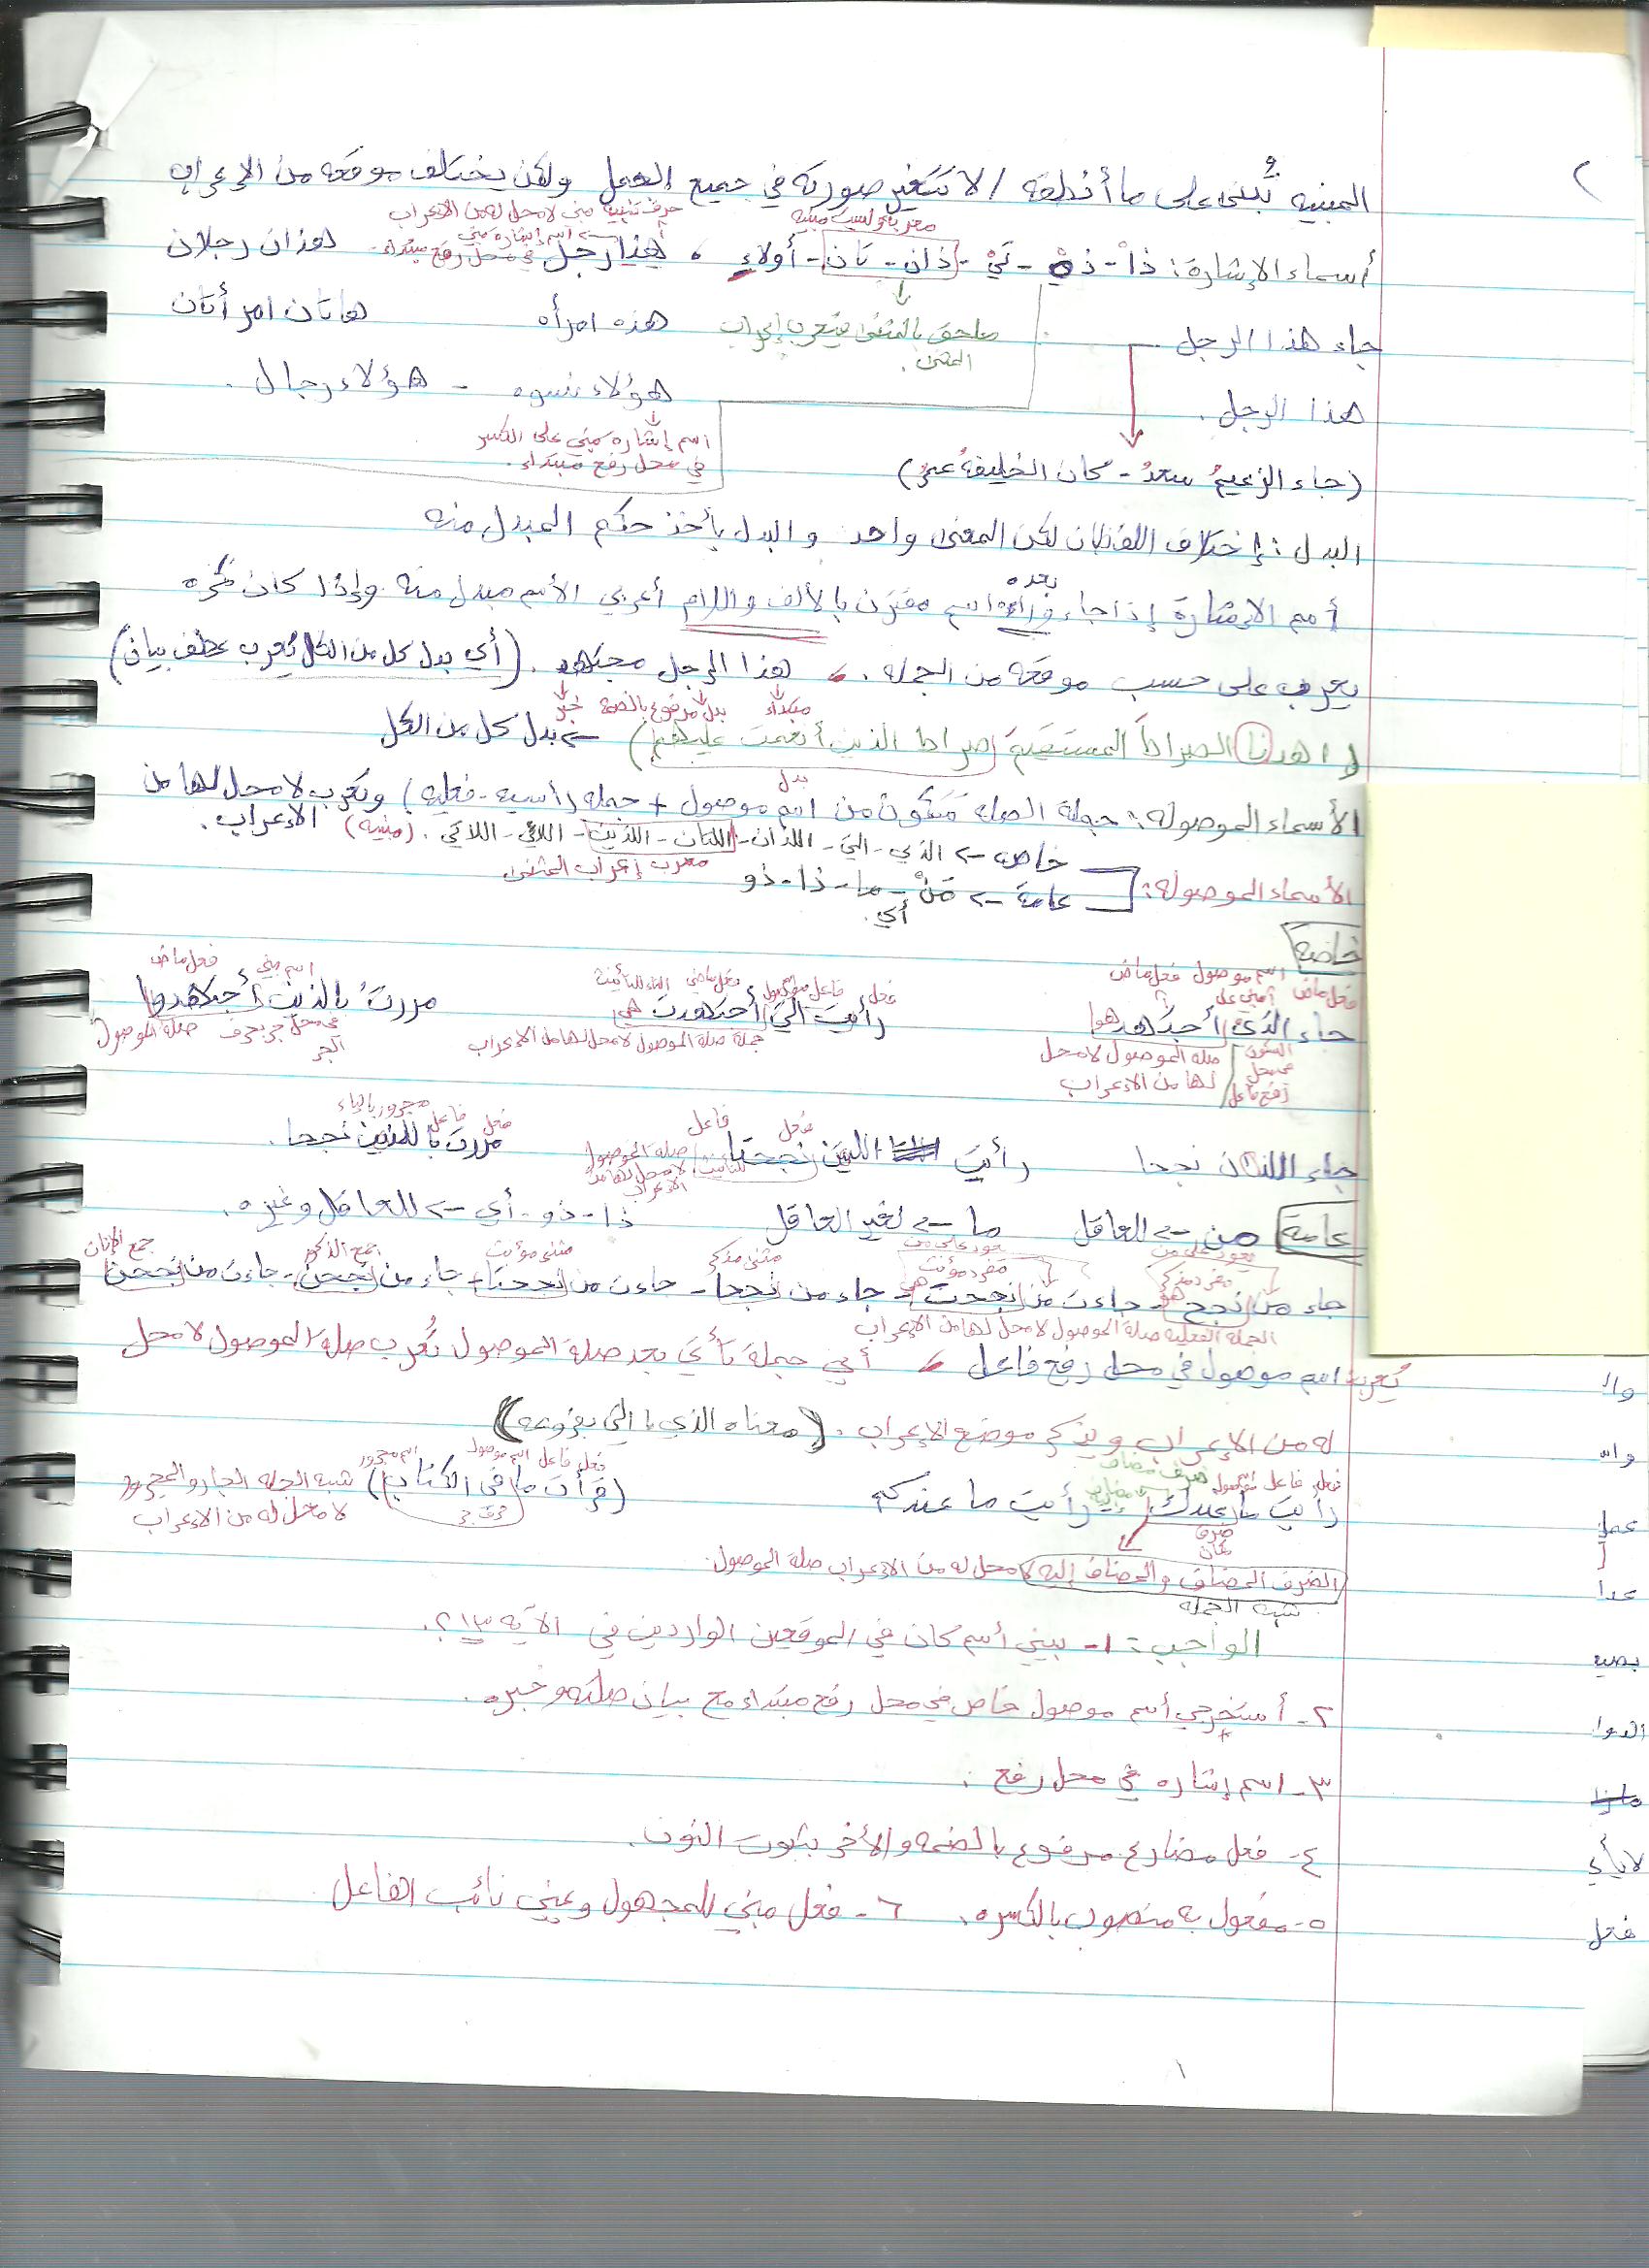 ٢
المبنيه تُبنى على ما أنطقه / لا تتغير صورته في جميع الجمل ولكن يختلف موقعه من الإعراب
معربة وليست مبنيه
حرف تنبيه مبني لا محل له من الإعراب
اسم إشاره مبني في محل رفع مبتداء
أسماء الإشارة: ذا - ذه - تي - ذان - تان - أولاءِ ، هذا رجل هذان رجلان
جاء هذا الرجل ملحق بالمثنى فيعرب إعراب المثنى. هذه امرأه هاتان امرأتان
هذا الرجل. هؤلاء نسوه - هؤلاء رجال.
اسم إشاره مبني على الكسر
في محل رفع مبتداء.
(جاء الزعيمُ سعدُ - كان الخليفهُ عمرُ)
البدل: إختلاف اللفظان لكن المعنى واحد والبدل يأخذ حكم المبدل منه
أسم الإشارة إذا جاء وراءه بعده اسم مقترن بالألف واللام أعربي الأسم مبدل منه وإذا كان نكره
يعرب على حسب موقعه من الجمله. هذا الرجل مجتهد. (أي بدل كل من الكل يُعرب عطف بيان)
مبتداء بدل مرفوع بالضمة خبر
(اهدنا الصراطَ المستقيمَ صراط الذين أنعمت عليهم) بدل كل من الكل
بدل
الأسماء الموصوله: جملة الصله تتكون من اسم موصول + جمله (أسميه - فعليه) وتعرب لا محل لها من الإعراب.
خاص ← الذي - التي - اللذان - اللتان - الذين - اللائي - اللاتي. (مبنيه)
معرب إعراب المثنى
الأسماء الموصوله:
عامة ← مَنْ - ما - ذا - ذو
أي.
خاصة
فعل ماض اسم موصول فعل ماض فعل فاعل فعل ماضي التاء للتأنيث اسم مبني فعل ماض
جاء الذي أجتهد هو رأيت التي أجتهدت هي مررتُ بالذين أجتهدوا
مبني على السكون في محل رفع فاعل
صله الموصول لا محل لها من الإعراب
جملة صلة الموصول لا محل لها من الإعراب
في محل جر بحرف الجر صلة الموصول
فعل فاعل فعل فاعل مجرور بالياء
جاء اللذان نجحا رأيت اللتين نجحتا مررت باللذين نجحا.
صلة الموصول لا محل لها من الإعراب
عامة من ← للعاقل ما ← لغير العاقل ذا - ذو - أي ← للعاقل وغيره.
يعود على من يعود على من
مفرد مذكر مفرد مؤنث مثنى مذكر مثنى مؤنث جمع الذكور جمع الإناث
جاء من نجح هو - جاءت من نجحت هي - جاء من نجحا - جاءت من نجحتا - جاء من نجحن - جاءت من نجحن
الجمله الفعليه صلة الموصول لا محل لها من الإعراب
يُعرب اسم موصول في محل رفع فاعل أي جملة تأتي بعد صلة الموصول تُعرب صلة الموصول لا محل
له من الإعراب ويذكر موضع الإعراب. (معناه الذي يا التي بفروعه)
فعل فاعل ظرف مضاف مضاف إليه فعل فاعل اسم موصول اسم مجرور
رأيت ما عندك رأيت ما عندكم (قرأت ما في الكتاب) شبه الجمله الجار والمجرور
ظرف مكان حرف جر لا محل له من الإعراب
الضرف المضاف والمضاف إليه لا محل له من الإعراب صلة الموصول.
شبه الجمله
الواجب: ١- بيني أسم كان في الموقعين الواردين في الآيه ٢١٣.
٢- أستخرجي أسم موصول خاص في محل رفع مبتداء مع بيان صلته وخبره.
٣- اسم إشاره في محل رفع.
٤- فعل مضارع مرفوع بالضمه والأخر بثبوت النون.
٥- مفعول به منصوب بالكسره. ٦- فعل مبني للمجهول وعيني نائب الفاعل
١